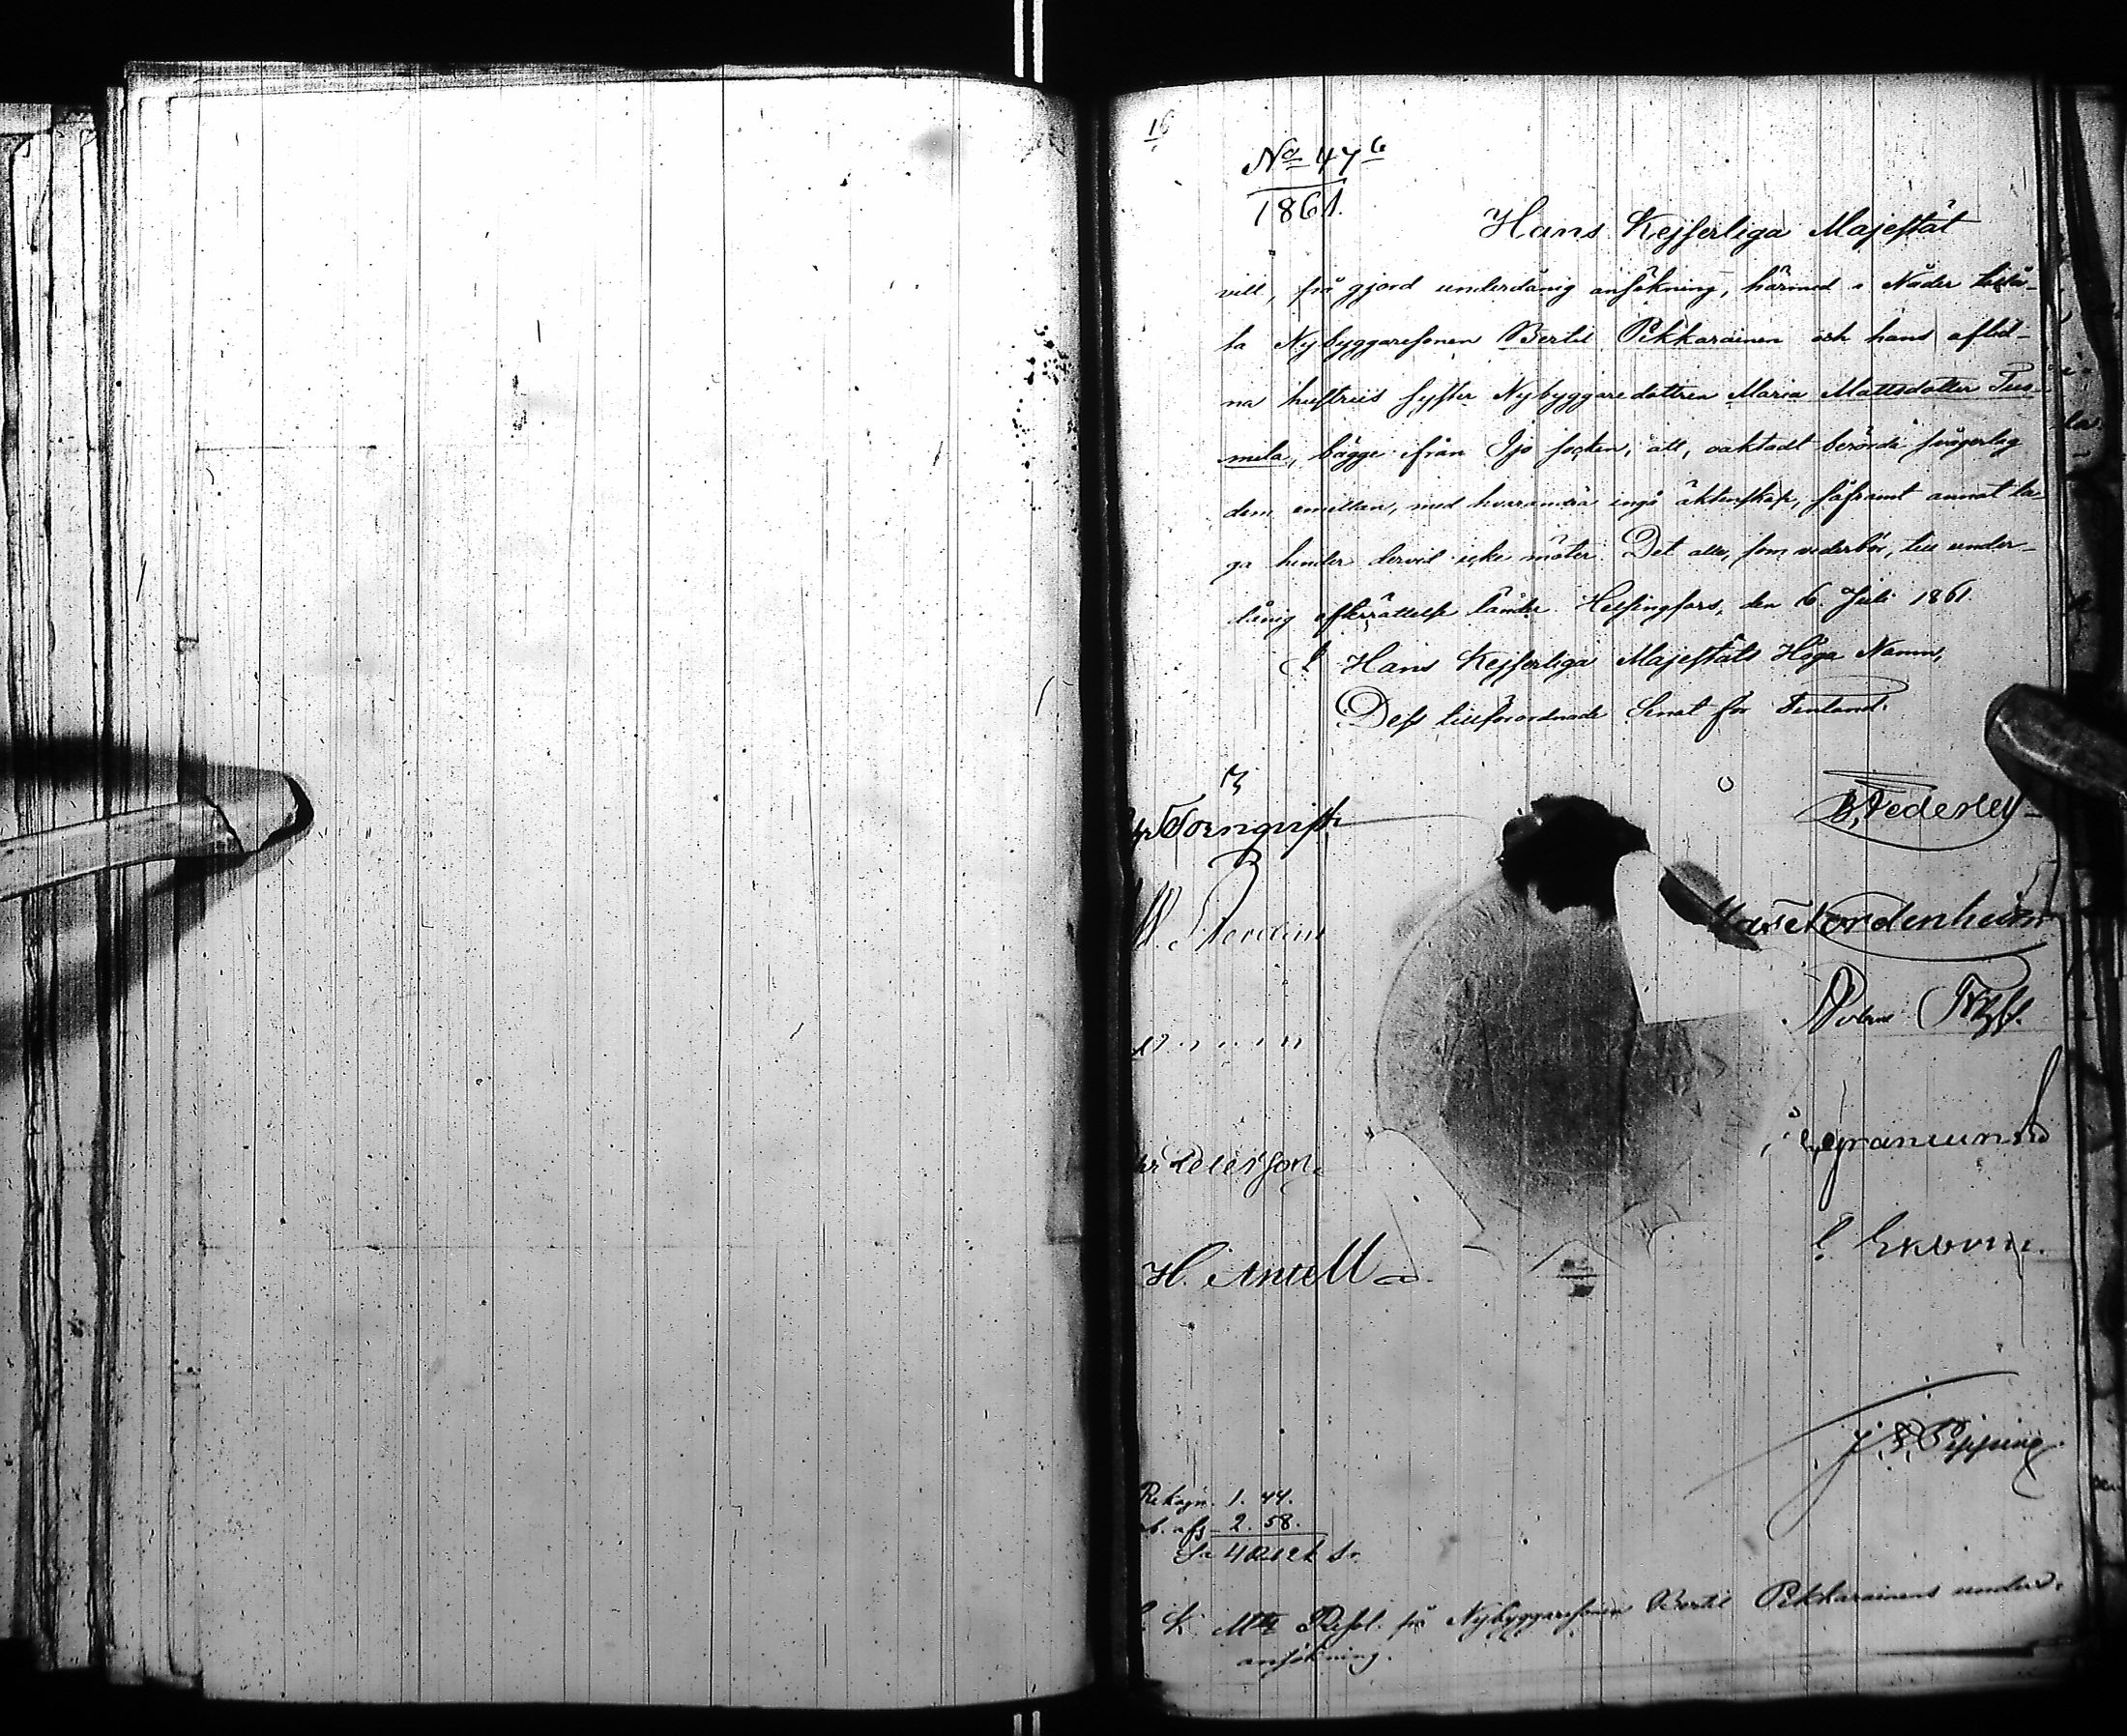 16
No 476
1861.
Hans Kejserliga Majestät
vill, på gjord underdånig ansökning, härmed i Nåder tillå-
ta Nybyggaresonen Bertil Pikkarainen och hans aflid-
na hustrus syster Nybyggaredottren Maria Mattsdotter Tuo-
mela, bägge ifrån Ijo socken, att, oaktadt berörde svågerlag
dem emellan, med hvarandra ingå äktenskap, såframt annat la-
ga hinder dervid icke möter. Det alle, som vederbör, till under-
dånig efterrättelse lände. Helsingfors, den 16. Juli 1861.
I Hans Kejserliga Majestäts Höga Namn,
Dess tillförordnade Senat för Finland.
B. Federley
Törnqvist
W.
Nordenheim
Granlund
Peterson
H. Antell
J. Pipping
Rekogn. 1. 44.
2. 58.
S:a 4
K. M:ts Resol. på Nybyggaresonen Bertil Pikkarainens underd.
ansökning.